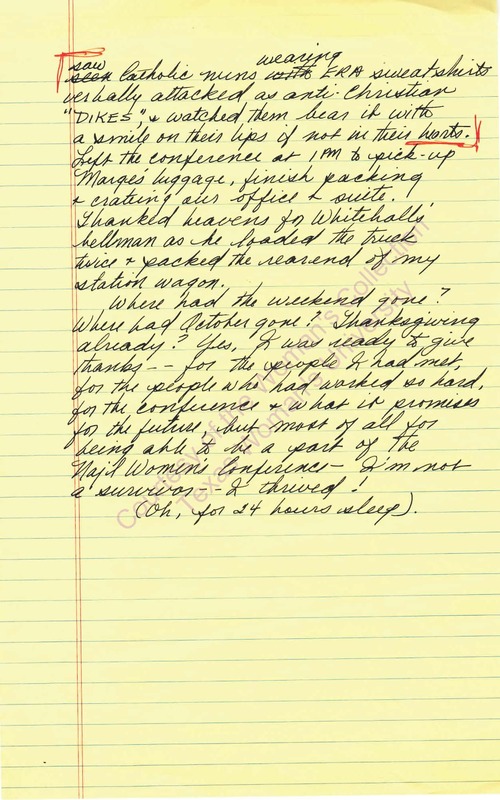 saw wearing
seen Catholic nuns with ERA sweatshirts
verbally attacked as anti-Christian
"DIKES", & watched them bear it with
a smile on their lips if not in their hearts.
Left the conference at 1 PM to pick-up
Marge's luggage, finish packing
& crating our office & suite.
Thanked heavens for Whitehalls,
bellman as he loaded the truck
twice & packed the rear end of my
station wagon.
Where had the weekend gone?
Where had October gone? Thanksgiving
already? Yes, I was ready to give
thanks -- for the people I had met,
for the people who had worked so hard,
for the conference & what it promises
for the future, but most of all for
being able to be a part of the
Nat'l Women's Conference - I'm not
a survivor - I thrived!
(Oh, for 24 hours sleep).
Courtesy of the Woman's Collection
Texas Woman's University